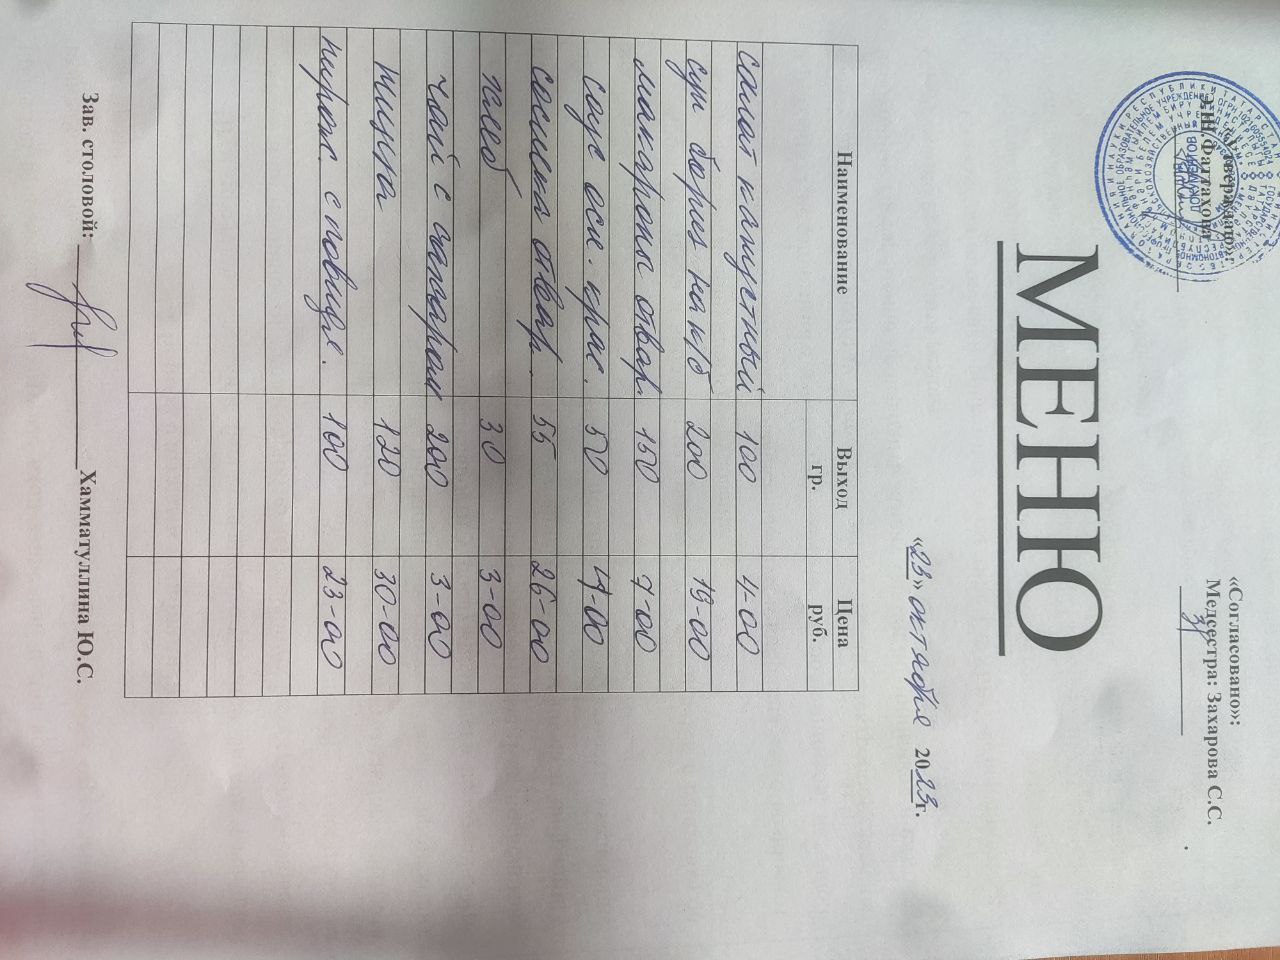 «Утверждаю»:
Э.Ш.Фаттахова
«Согласовано»:
Медсестра: Захарова С.С.
МЕНЮ
«23» октября 2023г.
Наименование Выход гр. Цена руб.
салат капустный 100 4-00
суп борщ на к/б 200 19-00
макароны отвар. 150 7-00
соус осн. крас. 50 4-00
сосиска отвар. 55 26-00
хлеб 30 3-00
чай с сахаром 200 3-00
пицца 120 30-00
пирож. с повидл. 100 23-00
Зав. столовой: Хамматуллина Ю.С.